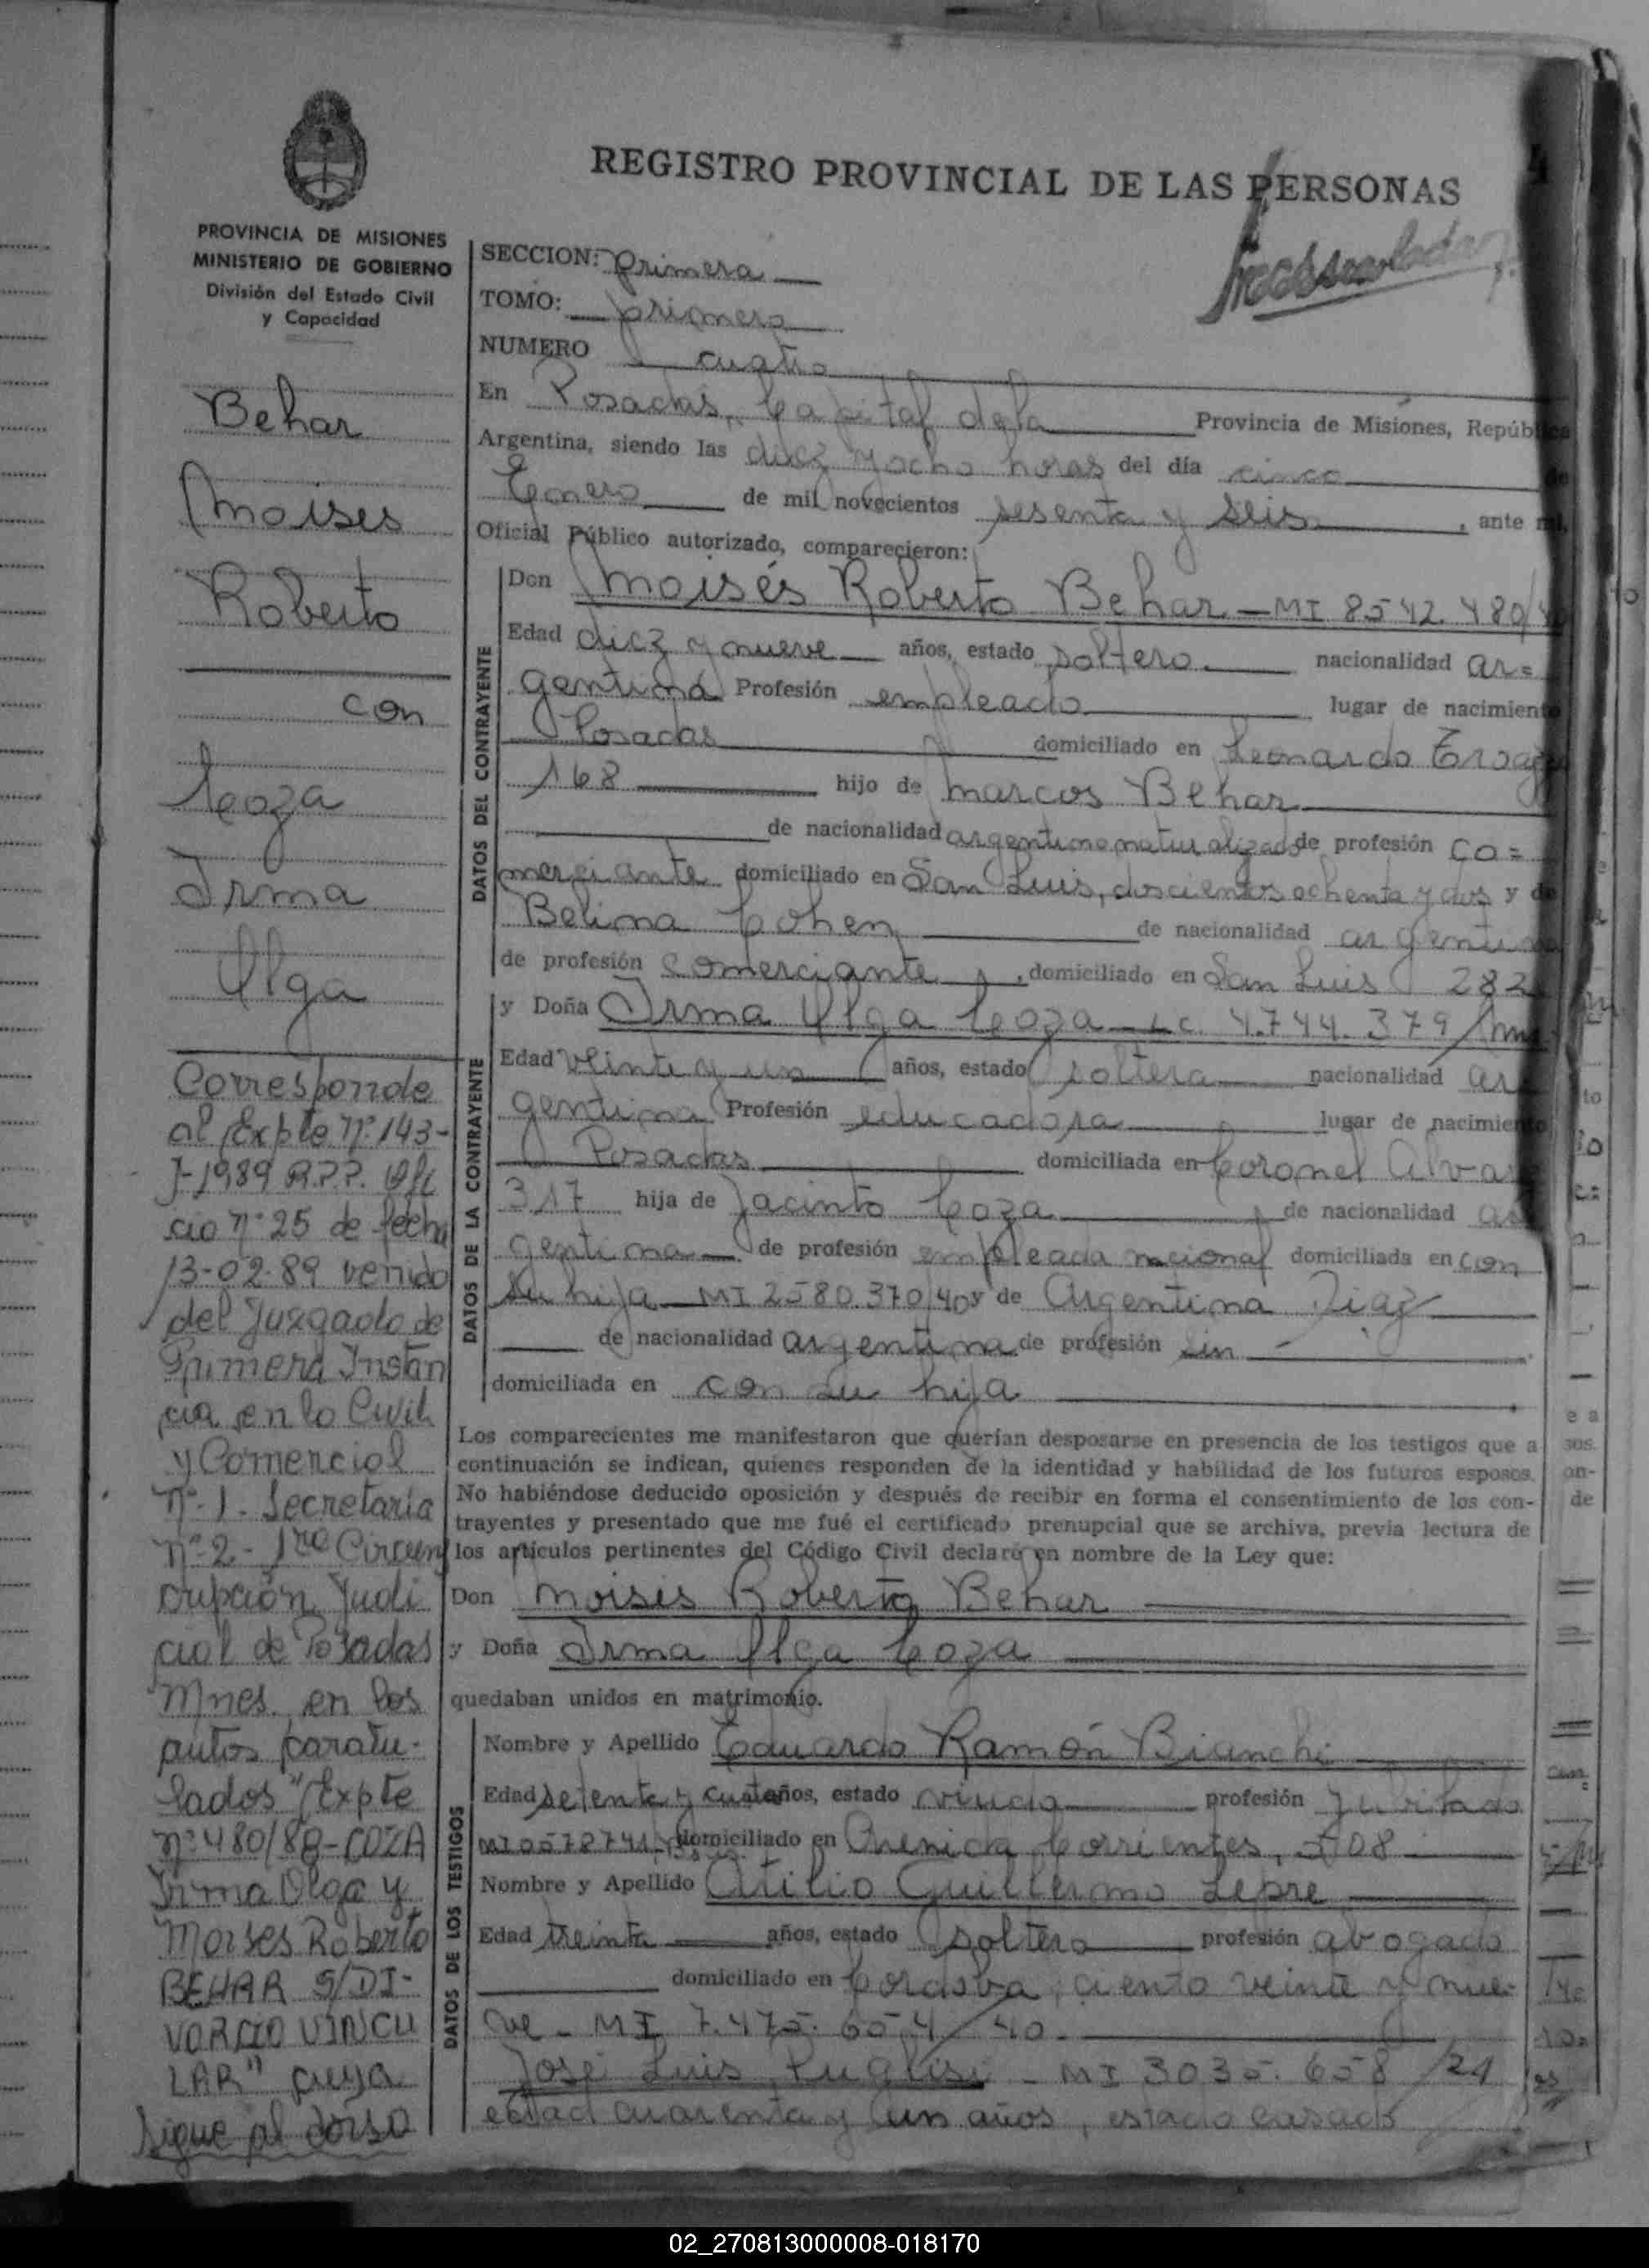 REGISTRO PROVINCIAL DE LAS PERSONAS
4
PROVINCIA DE MISIONES
MINISTERIO DE GOBIERNO
División del Estado Civil
y Capacidad
Behar
Moises
Roberto
con
Coza
Irma
Olga
Corresponde
al Expte Nº 143-
J-1989 R.P.P. Ofi
cio nº 25 de fecha
13-02-89 venido
del Juzgado de
Primera Instan
cia en lo Civil
y Comercial
nº 1. Secretaría
nº 2 - 1ra Circuns
cripción Judi
cial de Posadas
Mnes. en los
autos caratu-
lados "Expte
nº 480/88-COZA
Irma Olga y
Moises Roberto
BEHAR S/DI-
VORCIO VINCU
LAR" cuya
Sigue al dorso
SECCION: Primera
TOMO: primero
NUMERO cuatro
En Posadas, Capital de la Provincia de Misiones, República
Argentina, siendo las diez y ocho horas del día cinco de
Enero de mil novecientos sesenta y seis, ante mí,
Oficial Público autorizado, comparecieron:
DATOS DEL CONTRAYENTE
Don Moisés Roberto Behar - MI 8542.480/
Edad diez y nueve años, estado soltero nacionalidad ar=
gentina Profesión empleado lugar de nacimiento
Posadas domiciliado en Leonardo
168 hijo de Marcos Behar
de nacionalidad argentino naturalizado de profesión co=
merciante domiciliado en San Luis, doscientos ochenta y dos y de
Belina Cohen de nacionalidad argentina
de profesión comerciante, domiciliado en San Luis 282
DATOS DE LA CONTRAYENTE
y Doña Irma Olga Coza - LC. 4.744.379/
Edad veinte y un años, estado soltera nacionalidad ar
gentina Profesión educadora lugar de nacimiento
Posadas domiciliada en Coronel Alva
317 hija de Jacinto Coza de nacionalidad ar
gentina de profesión empleada nacional domiciliada en con
su hija - MI 2580.370/40 y de Argentina Diaz
de nacionalidad argentina de profesión sin
domiciliada en con su hija
Los comparecientes me manifestaron que querían desposarse en presencia de los testigos que a
continuación se indican, quienes responden de la identidad y habilidad de los futuros esposos.
No habiéndose deducido oposición y después de recibir en forma el consentimiento de los con-
trayentes y presentado que me fué el certificado prenupcial que se archiva, previa lectura de
los artículos pertinentes del Código Civil declaro en nombre de la Ley que:
Don Moisés Roberto Behar
y Doña Irma Olga Coza
quedaban unidos en matrimonio.
DATOS DE LOS TESTIGOS
Nombre y Apellido Eduardo Ramón Bianchi
Edad setenta y cuatro años, estado viudo profesión Jubilado
domiciliado en Avenida Corrientes,
Nombre y Apellido Atilio Guillermo Lepre
Edad treinta años, estado soltero profesión abogado
domiciliado en Cordoba, ciento veinte y nue-
ve - MI 7.475.654/40.
José Luis Puglisi - MI 3035.658/21
edad cuarenta y un años, estado casado
02_270813000008-018170